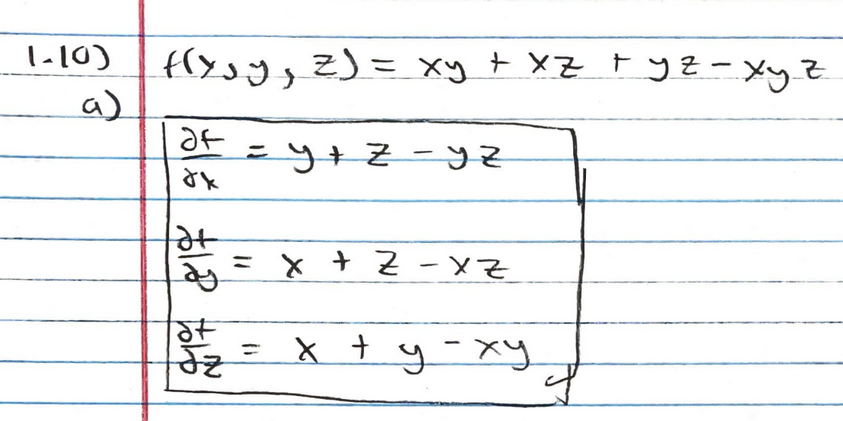 1.10) f(x,y,z) = xy + xz + yz - xyz
a)
∂f/∂x = y + z - yz
∂f/∂y = x + z - xz
∂f/∂z = x + y - xy